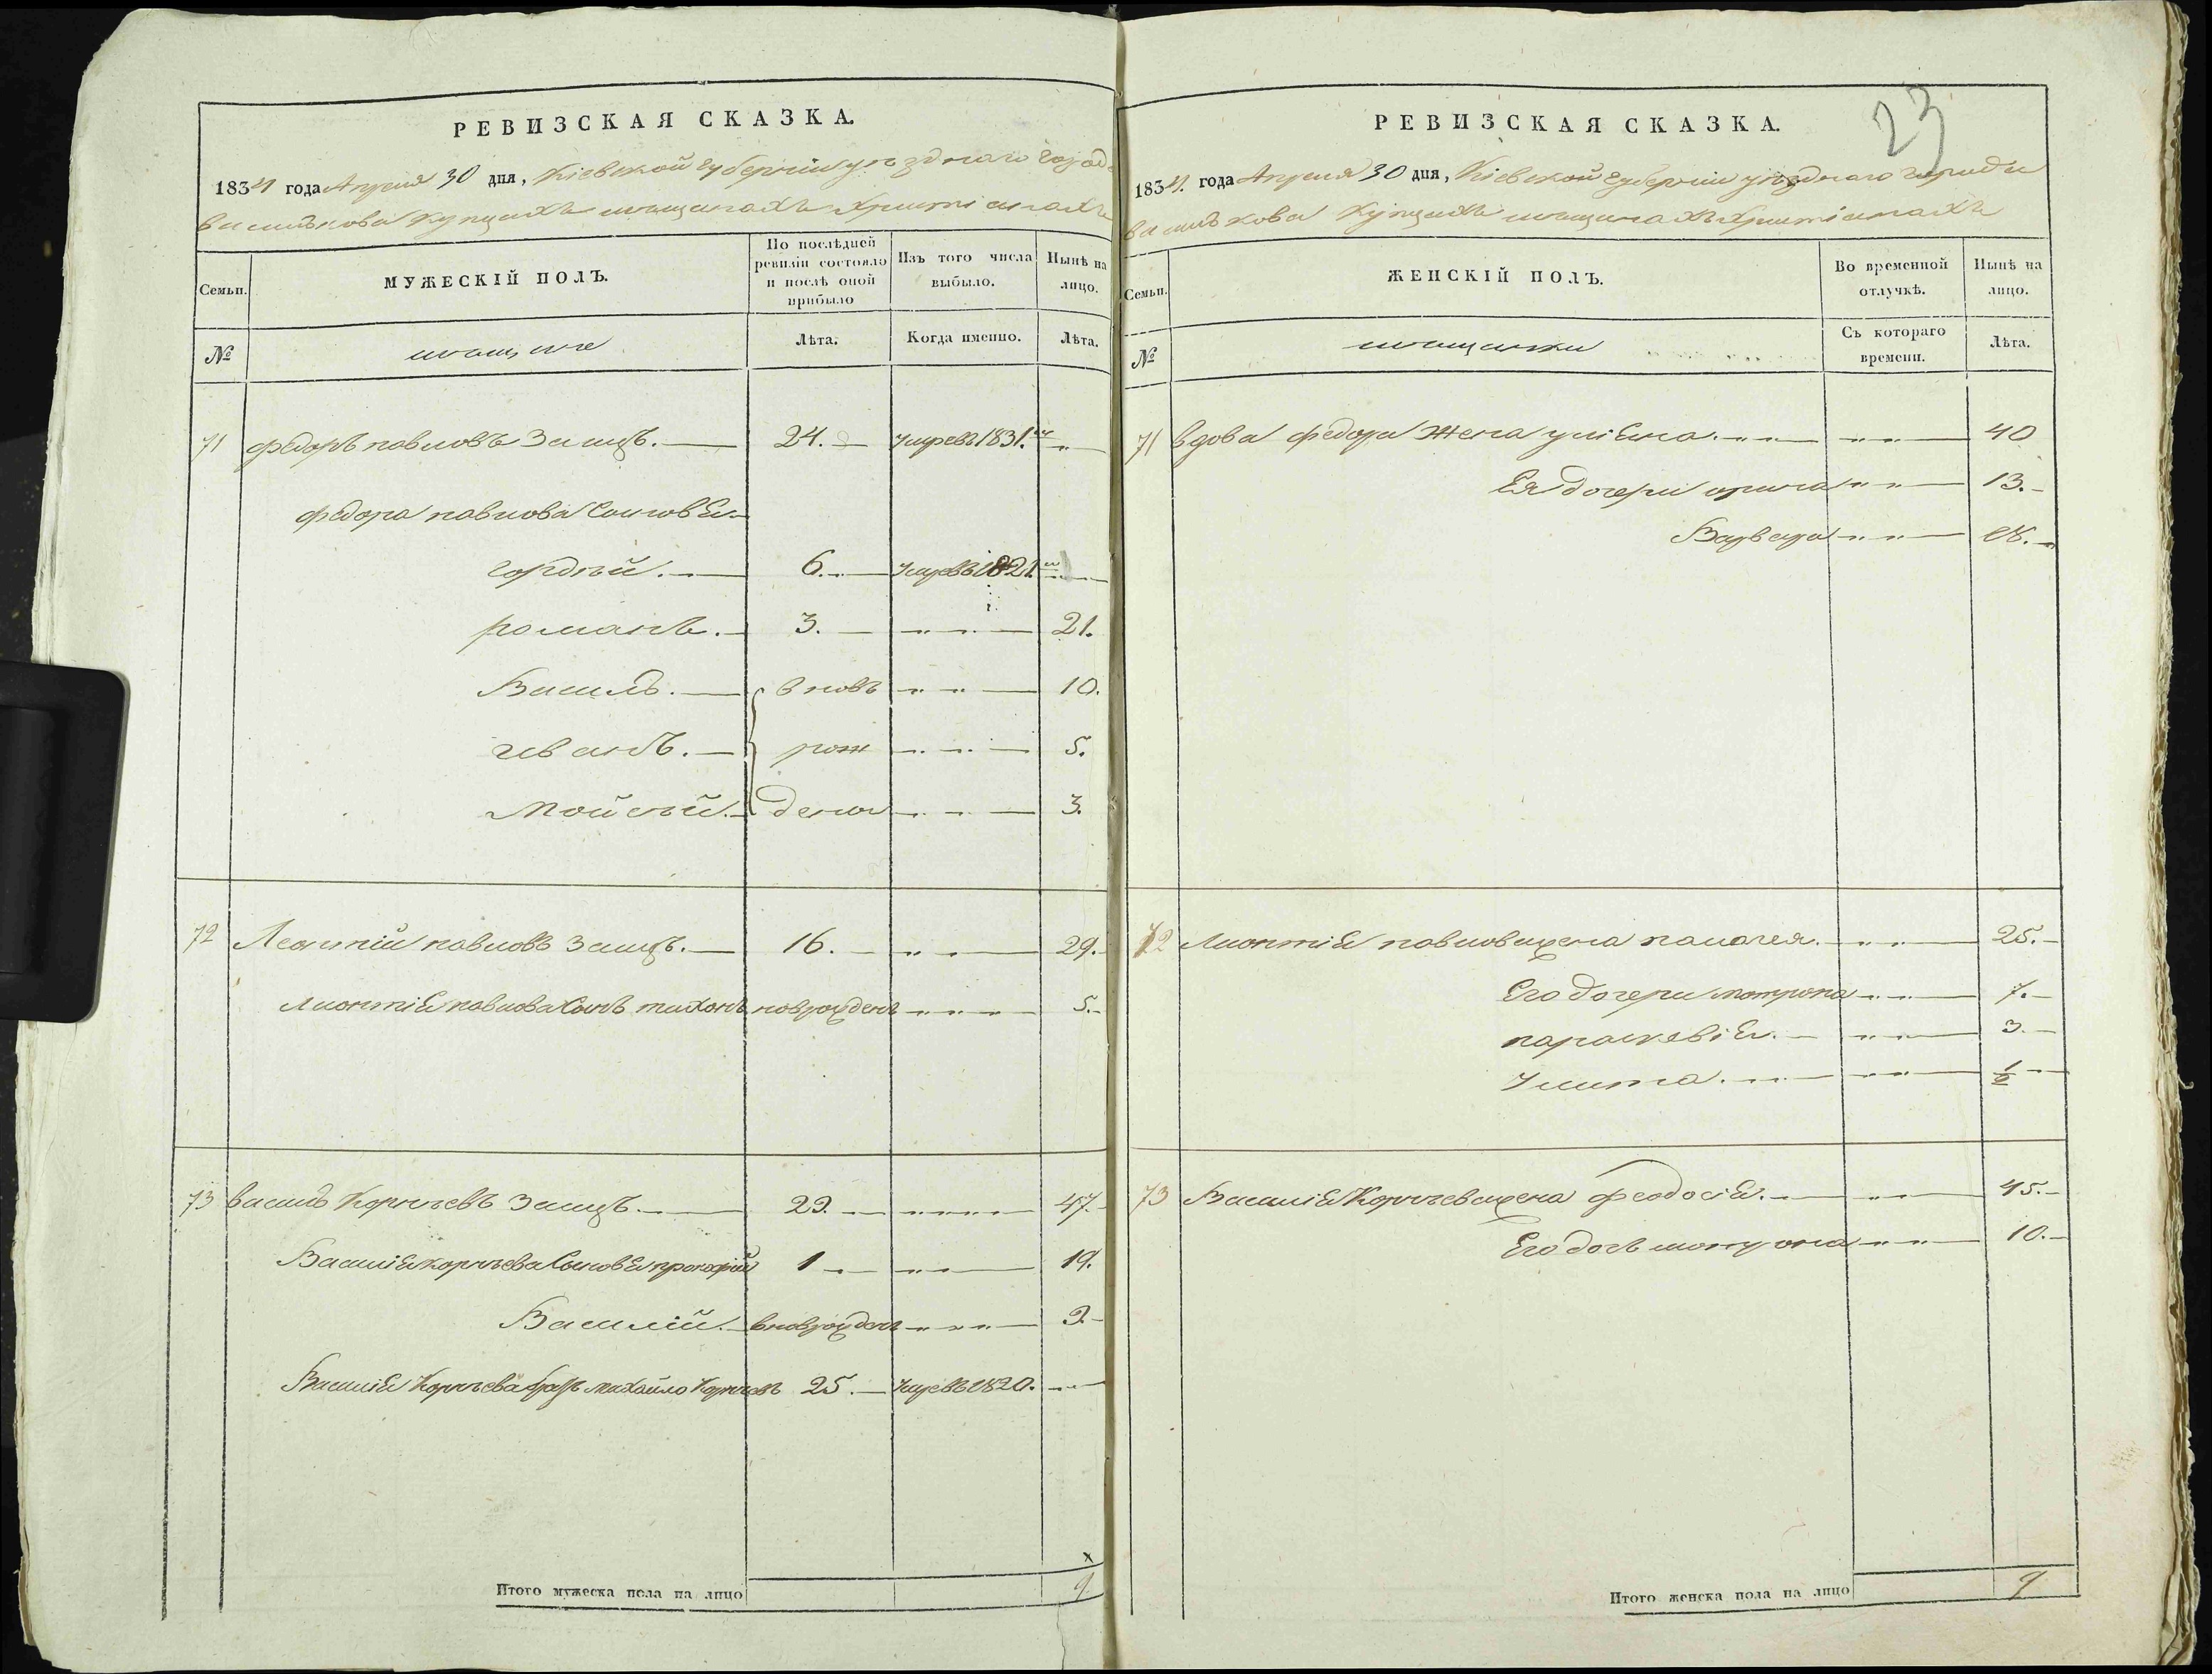 РЕВИЗСКАЯ СКАЗКА.
1834 года Апреля 30 дня, Кіевской губерніи уезднаго город
василькова купцахъ мещанахъ Христіанахъ
Семьи.
МУЖЕСКІЙ ПОЛЪ.
По послѣдней ревизіи состояло и послѣ оной прибыло
Изъ того числа выбыло.
Нынѣ на лицо.
№
мещане
Лѣта.
Когда именно.
Лѣта.
71 федоръ павловъ Заецъ. 24. Умревъ 1831.
федора павлова Сыновья
гордѣй. 6. Умревъ 1821.
романъ. 3. 21.
Василь. вновь 10.
иванъ. рож 5.
мойсѣй. дени 3.
72 Леонтій павловъ Заецъ. 16. 29.
Леонтія павлова Сынъ тихонъ новрожденъ 5.
73 василь Корнѣевъ Заецъ. 47.
Василія корнѣева Сыновья прокофій 1 19.
Василій. вновьрожденъ
Василія Корнѣева братъ михайло Корнѣевъ 25. Умревъ 1820.
Итого мужеска пола на лицо 9
РЕВИЗСКАЯ СКАЗКА.
23
1834. года Апреля 30 дня, Кіевской губерніи уезднаго города
василькова Купцахъ мещанахъ Христіанахъ
Семьи.
ЖЕНСКІЙ ПОЛЪ.
Во временной отлучкѣ.
Нынѣ на лицо.
№
мещанки
Съ котораго времени.
Лѣта.
71 вдова федора Жена уліяна. 40
Ея дочери ирина 13.
Варвара
72 Леонтія павлова жена палагея. 25.
Его дочери мотрона 7.
параскевія. 3.
Улита. 1/2
73 Василія Корнѣева жена феодосія. 45.
Его дочь мотрона 10.
Итого женска пола на лицо 9